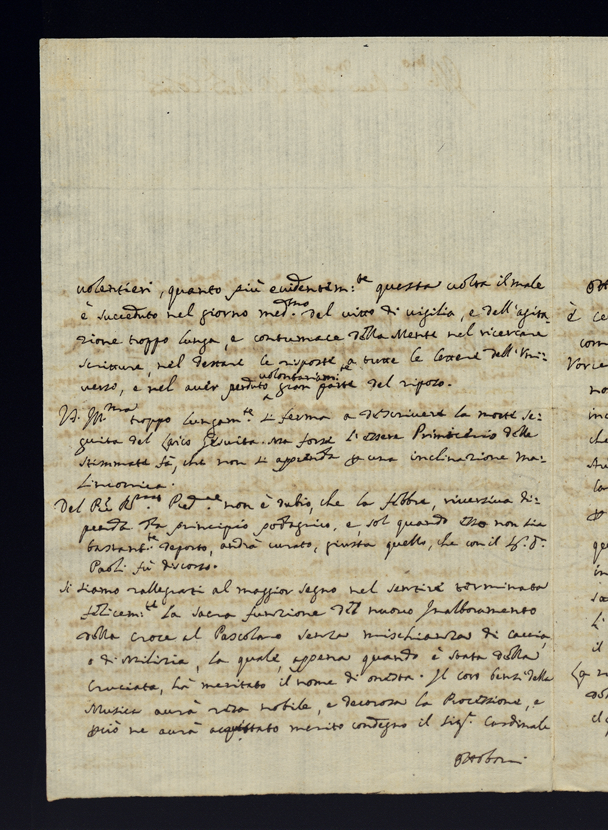 volentieri, quanto più evidentem:te questa volta il male
è succeduto nel giorno med:smo del vitto di vigilia, e dell'agita-
zione troppo lunga, e contumace della Mente nel ricercare
scritture, nel dettare le risposte a tutte le lettere dell'Uni-
verso, e nel aver perduto volontariam:te gran parte del riposo.
troppo lungam:te si ferma a descrivere la morte se-
guita del Gesuita. Ma forse l'essere Primicerio delle
Stimmate fà, che non si apprenda p una inclinazione ma-
linconica.
Del non è dubio, che la febbre, riversiva di-
penda da principio podagrico, e, sol quando esso non sia
bastant:te deposto, andrà curato, giusta quello, che con il Sr. Dr.
Paoli fù discorso.
Si siamo rallegrati al maggior segno nel sentire terminata
felicem:te la sacra funzione del nuovo Inalboramento
della Croce al Pascolaro senza mischianza di caccia,
e di Milizia, la quale, appena quando è stata della
Cruciata, hà meritato il nome di onesta. Il coro bensì della
Musica avrà resa nobile, e decorosa la Processione, e
però ne aurà acquistato merito condegno il Sigr. Cardinale
Ottoboni
è ce
com
no
inc
che
la
p
que
in
L'
il